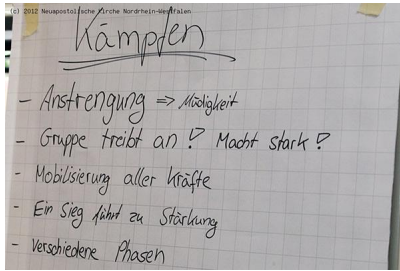 (c) 2012 Neuapostolische Kirche Nordrhein-Westfalen
Kämpfen
- Anstrengung => Müdigkeit
- Gruppe treibt an!? Macht stark?
- Mobilisierung aller Kräfte
- Ein Sieg führt zu Stärkung
- Verschiedene Phasen